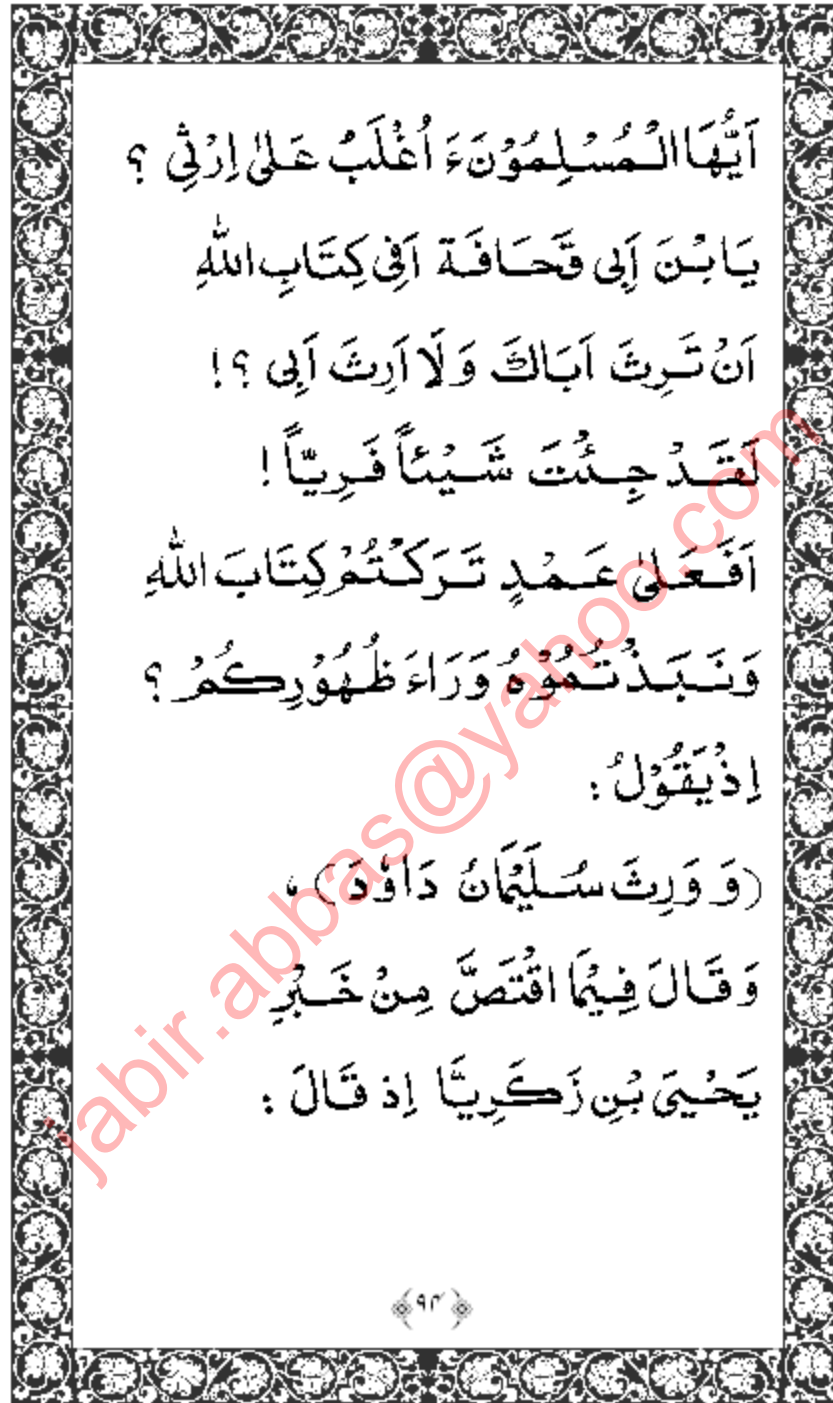 اَيُّهَا الْمُسْلِمُوْنَ ءَ اُغْلَبُ عَلٰى اِرْثِيْ ؟
يَا بْنَ اَبِى قَحَافَة اَفِىْ كِتَابِ اللّٰهِ
اَنْ تَرِثَ اَبَاكَ وَلَا اَرِثَ اَبِى ؟!
لَقَدْ جِئْتَ شَيْئاً فَرِيّاً !
اَفَعَلٰى عَمْدٍ تَرَكْتُمْ كِتَابَ اللّٰهِ
وَنَبَذْتُمُوْهُ وَرَاءَ ظُهُوْرِكُمْ ؟
اِذْ يَقُوْلُ :
(وَ وَرِثَ سُلَيْمَانُ دَاوٗدَ) ،
وَقَالَ فِيْمَا اقْتَصَّ مِنْ خَبَرِ
يَحْيَى بْنِ زَكَرِيَّا اِذ قَالَ :
۹۴
jabir.abbas@yahoo.com